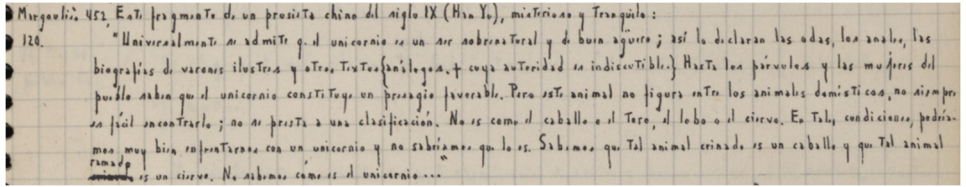 Margouliès 452. Este fragmento de un prosista chino del siglo IX (Han Yu), misterioso y tranquilo:
120. "Universalmente se admite q. el unicornio es un ser sobrenatural y de buen agüero; así lo declaran las odas, los anales, las
biografías de varones ilustres y otros textos {análogos. + cuya autoridad es indiscutible.} Hasta los párvulos y las mujeres del
pueblo saben que el unicornio constituye un presagio favorable. Pero este animal no figura entre los animales domésticos, no siempre
es fácil encontrarlo; no se presta a una clasificación. No es como el caballo o el toro, el lobo o el ciervo. En tales condiciones, podría-
mos muy bien enfrentarnos con un unicornio y no sabríamos que lo es. Sabemos que tal animal crinado es un caballo y que tal animal
ramado
es un ciervo. No sabemos cómo es el unicornio..."